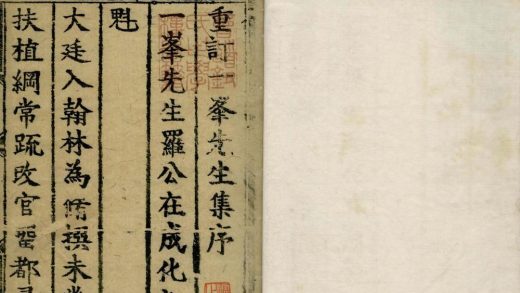 重訂一峯先生集序
一峯先生羅公在成化
魁
大廷入翰林為脩撰未
扶植綱常疏改官畱都